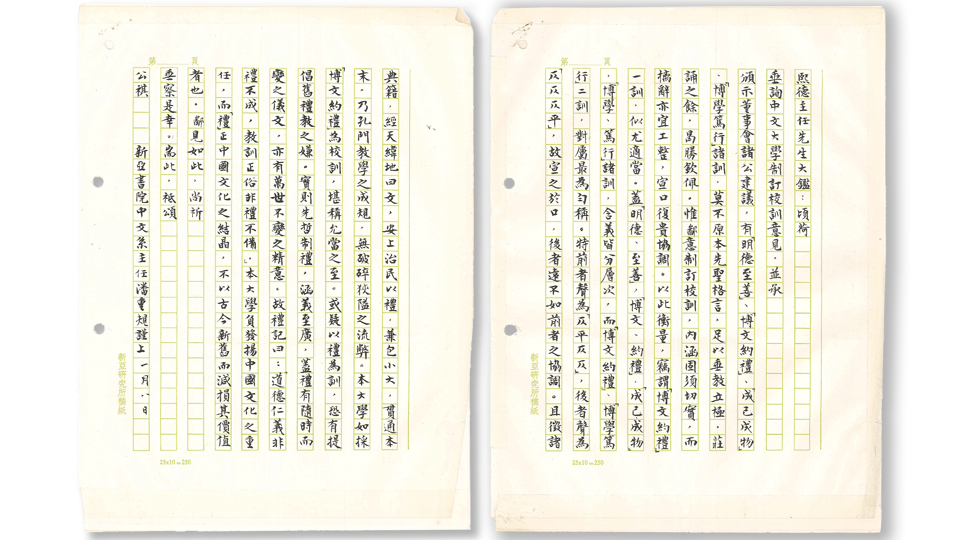 第　　頁
熙德主任先生大鑑：頃荷
垂詢中文大學制訂校訓意見，並承
頒示董事會諸公建議，有「明德至善」、「博文約禮」、「成己成物」
、「博學篤行」諸訓，莫不原本先聖格言，足以垂教立極，莊
誦之餘，曷勝欽佩。惟鄙意制訂校訓，內涵固須切實，而
摛辭亦宜工整，宣口復貴協調。以此衡量，竊謂「博文約禮」
一訓，似尤適當。蓋「明德、至善」，「博文、約禮」，「成己成物」
、「博學、篤行」諸訓，含義皆分層次，而「博文約禮」、「博學篤
行」二訓，對屬最為勻稱。特前者聲為「仄平仄仄」，後者聲為
「仄仄仄平」，故宣之於口，後者遠不如前者之協調。且徵諸
新亞研究所稿紙
25x10＝250
第　　頁
典籍，經天緯地曰文，安上治民以禮，兼包小大，貫通本
末，乃孔門教學之成規，無破碎狹隘之流弊。本大學如採「
博文約禮」為校訓，堪稱允當之至。或疑以禮為訓，恐有提
倡舊禮教之嫌。實則先哲制禮，涵義至廣，蓋禮有隨時而
變之儀文，亦有萬世不變之精意。故禮記曰：「道德仁義非
禮不成，教訓正俗非禮不備。」本大學負發揚中國文化之重
任，而「禮」正中國文化之結晶，不以古今新舊而減損其價值
者也。鄙見如此，尚祈
垂察是幸。耑此，祗頌
公祺　　新亞書院中文系主任潘重規謹上　一月八日
新亞研究所稿紙
25x10＝250